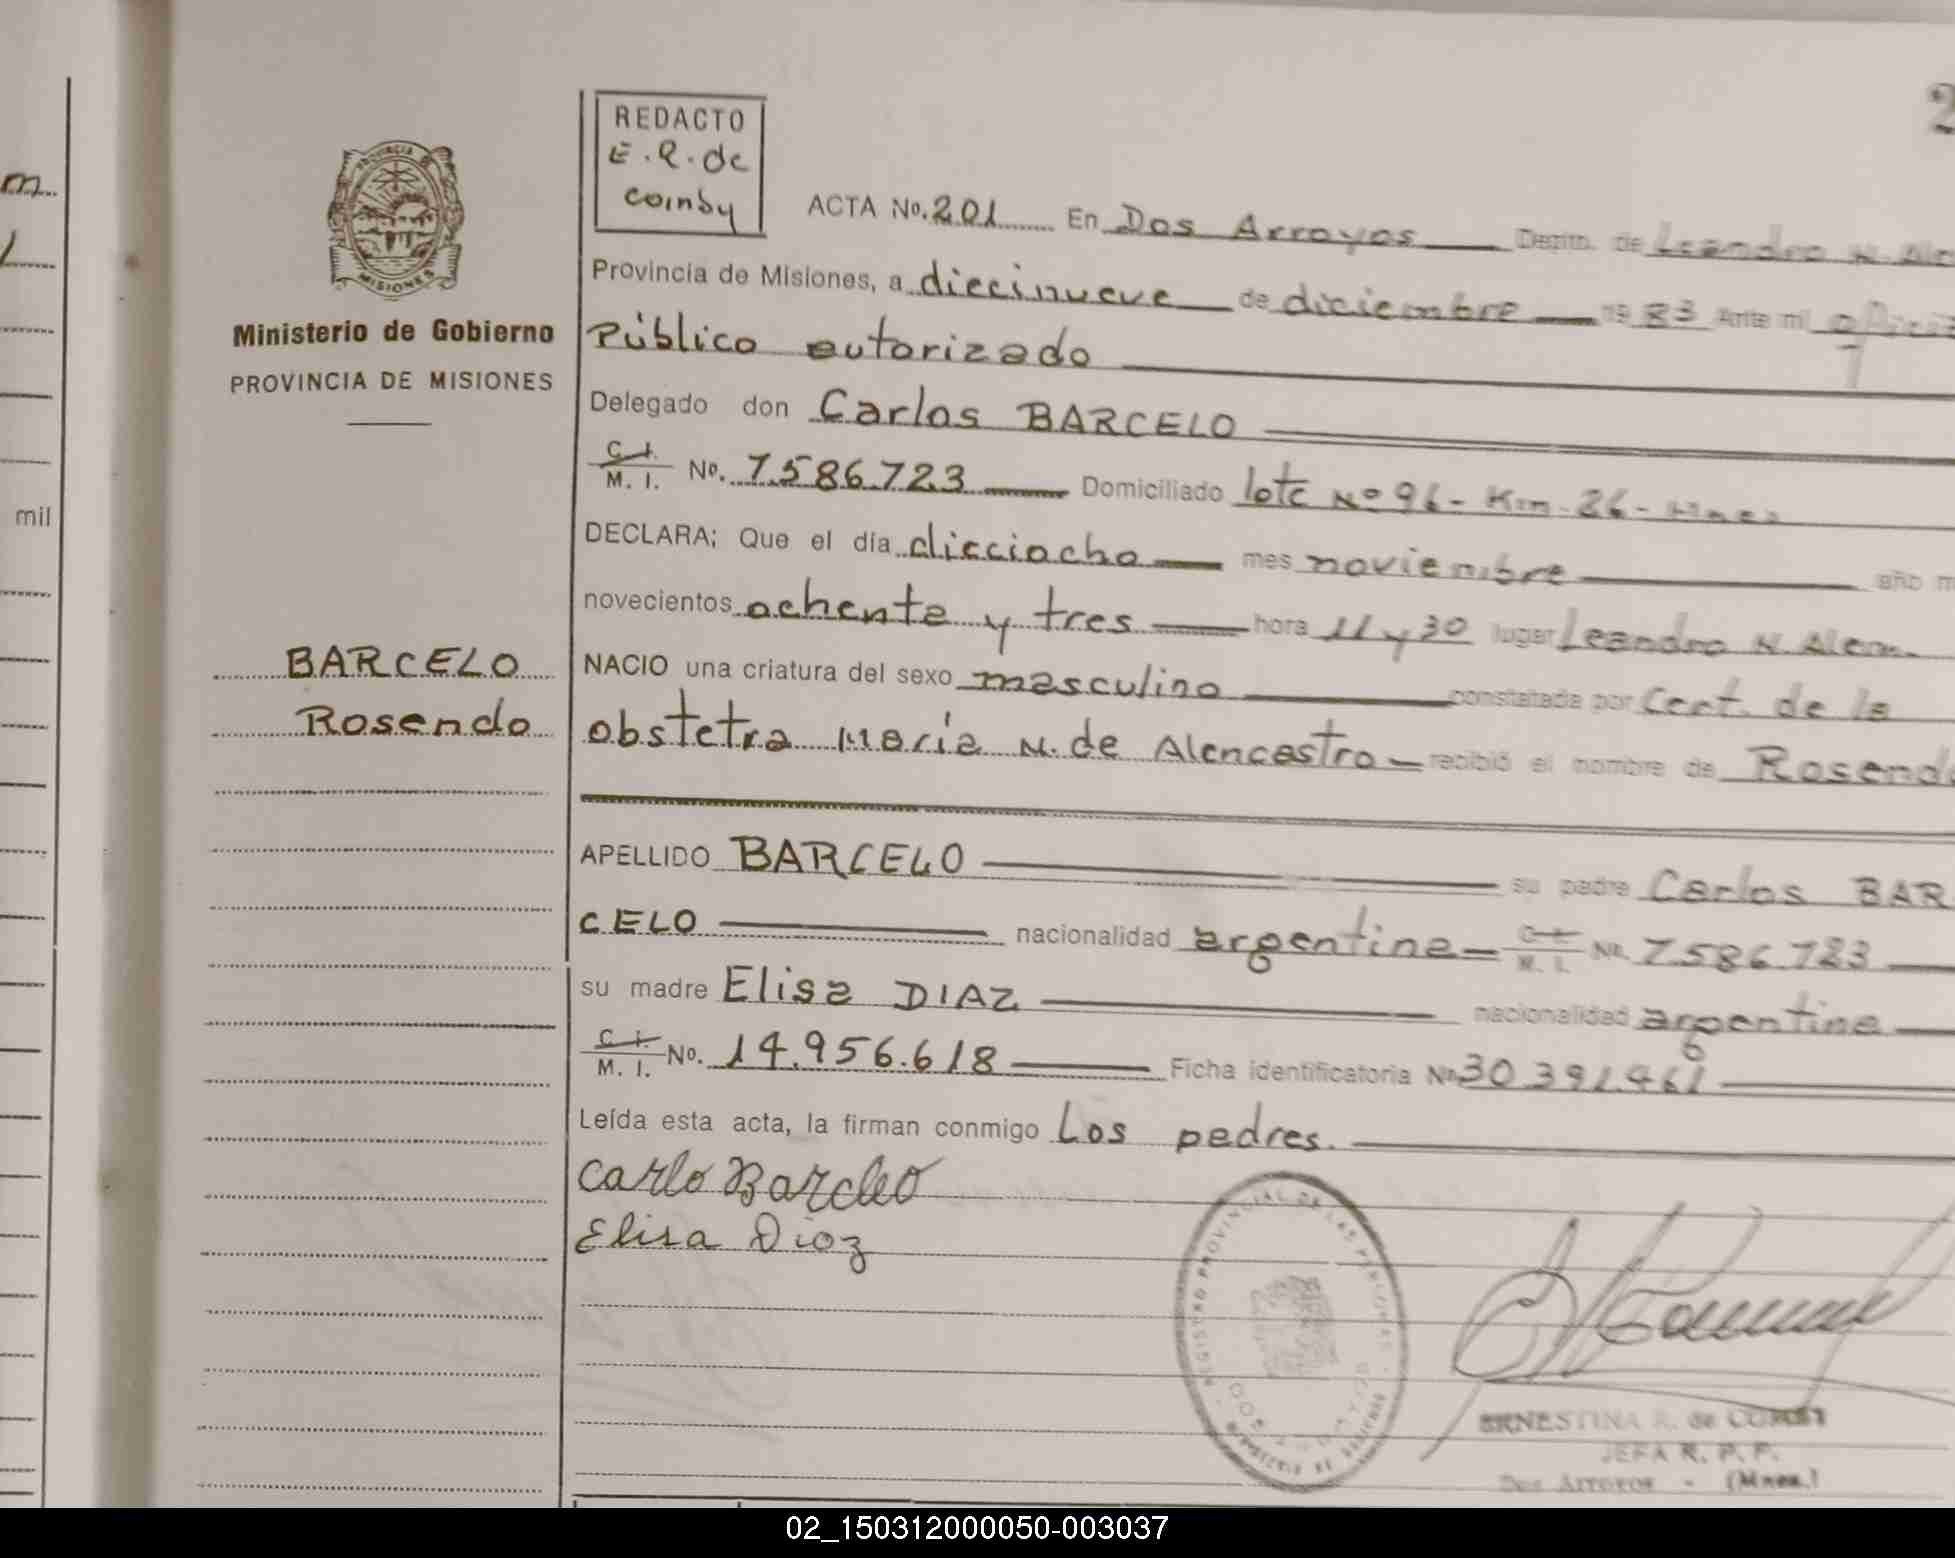 2
REDACTO
E.R. de
coinby
PROVINCIA
MISIONES
Ministerio de Gobierno
PROVINCIA DE MISIONES
m
mil
BARCELO
Rosendo
ACTA No. 201 En Dos Arroyos Depto. de Leandro N. Ale
Provincia de Misiones, a diecinueve de diciembre 19 83 Ante mí
Público autorizado
Delegado don Carlos BARCELO
C. I. M. I. No. 7.586.723 Domiciliado lote Nº 96 - Km. 26 - Mnes
DECLARA; Que el día dieciocho mes noviembre año m
novecientos ochenta y tres hora 11 y 30 lugar Leandro N. Alem.
NACIO una criatura del sexo masculino constatada por Cert. de la
obstetra María N. de Alencastro recibió el nombre de Rosendo
APELLIDO BARCELO su padre Carlos BAR
CELO nacionalidad argentina C. I. M. I. No. 7.586.723
su madre Elisa DIAZ nacionalidad argentina
C. I. M. I. No. 14.956.618 Ficha identificatoria No 30.391.461
Leída esta acta, la firman conmigo Los padres.
Carlo Barcleo
Elisa Dioz
REGISTRO PROVINCIAL DE LAS PERSONAS
DOS ARROYOS
MINISTERIO DE GOBIERNO
ERNESTINA R. de
JEFA R. P. P.
Dos Arroyos - (Mnes.)
02_150312000050-003037